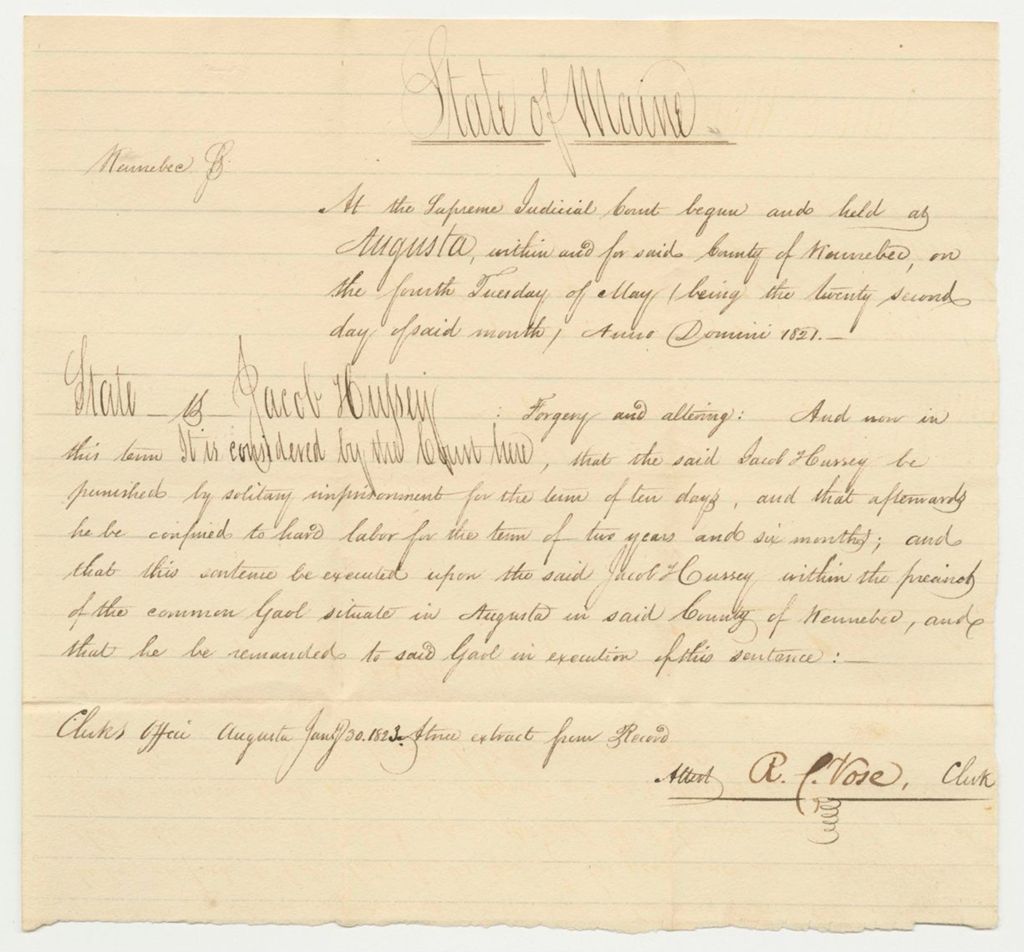 State of Maine.
Kennebec Ss.
At the Supreme Judicial Court begun and held at
Augusta, within and for said County of Kennebec, on
the fourth Tuesday of May (being the twenty second
day of said month) Anno Domini 1821.—
State — vs — Jacob Hussey : Forgery and altering: And now in
this term It is considered by the Court here, that the said Jacob Hussey be
punished by solitary imprisonment for the term of ten days, and that afterwards
he be confined to hard labor for the term of two years and six months; and
that this sentence be executed upon the said Jacob Hussey within the precinct
of the common Gaol situate in Augusta in said County of Kennebec, and
that he be remanded to said Gaol in execution of this sentence:—
Clerk's Office Augusta Jany 30. 1823. A true extract from Record
Attest R. C. Vose, Clerk